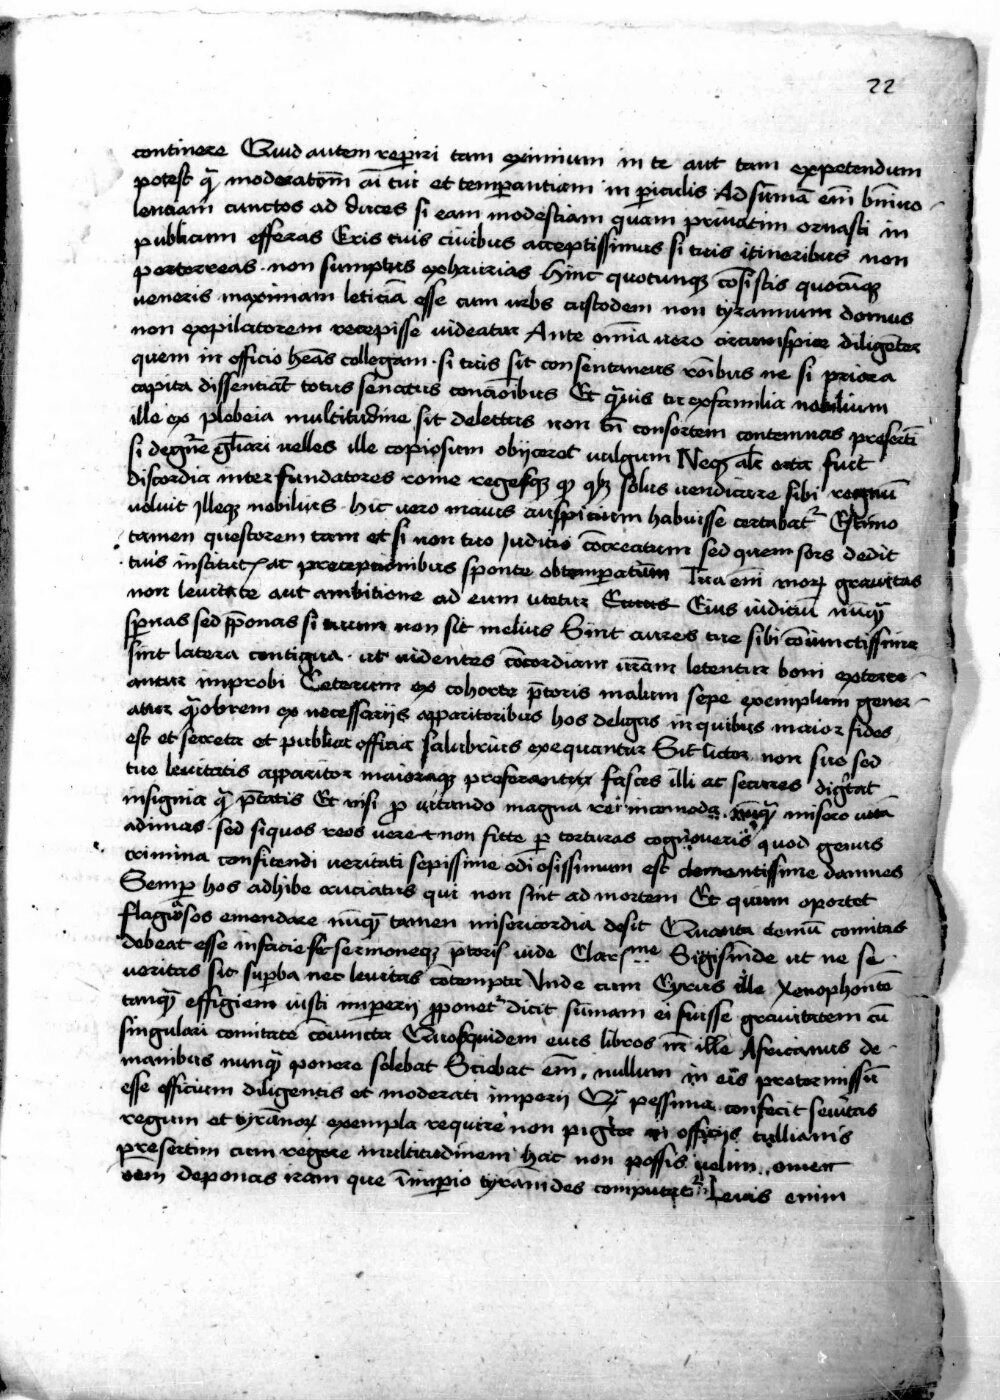 22
continere Quid autem reperiri tam eximium in te aut tam expetendum
potest q̃ moderatom̃ ai tui et temperantiam in periculis Ad sūmā em̃ bn̄iuo-
lentiam cunctos ad duces si eam modestiam quam priuatim ornasti in
publicum efferas Eris tuis ciuibus acceptissimus si tuis itineribus non
portorreas · non sumptus exhaurias Hinc quocunqȝ cōsistis quocūqȝ
ueneris maximam leticiā esse cum urbs custodem non tyrannum domus
non expilatorem recepisse uideatur Ante om̄ia uero circumspice diligeter
quem in officio heās collegam · si tuis sit consentaneus rōibus ne si priora
capita dissentiāt totus senatus conāōibus Et q̃uis tu ex familia nobilium
ille ex plebeia multitudine sit delectus non tn̄ consortem contemnas presertī
si degn̄e gl̄iari uelles ille copiosum obijceret uulgum Neqȝ alr̄ orta fuit
discordia inter fundatores rome regesqȝ qȝ solus uendicare sibi regnū
uoluit Illeqȝ nobilius · hic uero maius auspitium habuisse certabat᷑ Estimo
tamen questorem tam et si non tuo Juditio cōcreatum sed quem sors dedit
tuis institut᷑ ac preceptionibus sponte obtemperatum Tua em̄ moꝝ grauitas
non leuitate aut ambitione ad eum utetur Eius iuditiū nūq̃
spernas sed p̄ponas si tuum non sit melius Sint aures tue sibi cōiunctissime
sint latera contigua · ut uidentes cōcordiam ur̄am letentur boni exterre-
antur improbi Ceterum ex cohorte p̄toris malum sepe exemplum gener-
atur q̃obrem ex necessarijs apparitoribus hos deligas in quibus maior fides
est et secreta et publica officia salubrius exequantur Sit lictor non sue sed
tue leuitatis apparitor maioraqȝ preferantur fasces illi ac secures dig͂tat
insignia q̃ p̄tatis Et nisi p uitando magna rei incomoda nūq̃ misero uitā
adimas · sed si quos reos uere et non ficte p torturas cognoueris quod genus
crimina confitendi ueritati sepissime odiosissimum est clementissime damnes
Semp hos adhibe cruciatus qui non sint ad mortem Et quum oportet
flagiōsos emendare nūqȝ tamen misericordia desit Quanta demū comitas
debeat esse in facie sermoneqȝ p̄toris uide Clarsme Sigismūde ut ne se-
ueritas sit supba nec leuitas cōtempta Vnde cum Cyrus ille Xenophontē
tanqȝ effigiem iusti imperij p̄ponet᷑ dicit sūmam ei fuisse grauitatem cū
singulari comitate cōiuncta Quosquidem eius libros nr̄ ille Africanus de-
manibus nunqȝ ponere solebat Sciebat em̄, nullum in eis pretermissū
esse officium diligentis et moderati imperij Qȝ pessima confecit seuitas
regum et tyrānoꝝ exempla require non pigeat in officijs tullianis
presertim cum regere multitudinem hac non possis uelim, omen
rem deponas iram que ī imperio tyrānides computat᷑ Leuis enim